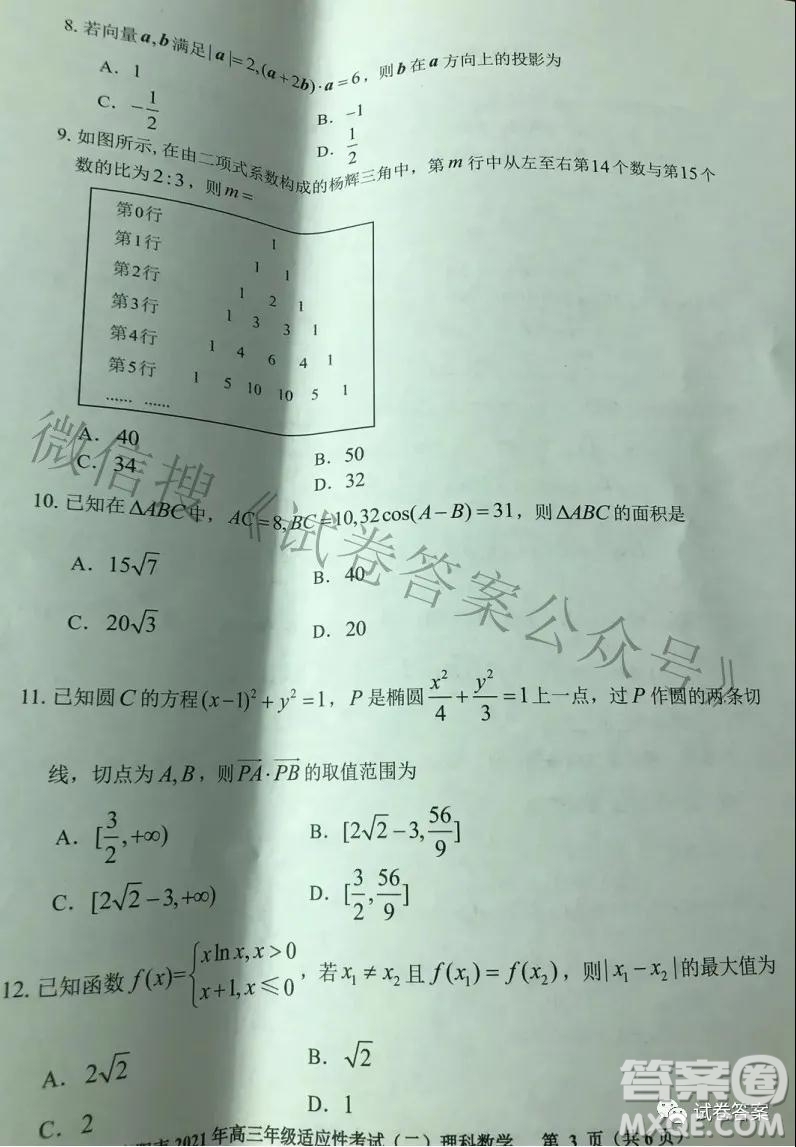 8. 若向量a,b满足|a|=2,(a+2b)·a=6，则b在a方向上的投影为
A. 1
B. −1
C. −1/2
D. 1/2
9. 如图所示,在由二项式系数构成的杨辉三角中，第m行中从左至右第14个数与第15个
数的比为2:3，则m=
第0行
1
第1行
1 1
第2行
1 2 1
第3行
1 3 3 1
第4行
1 4 6 4 1
第5行
1 5 10 10 5 1
…… ……
A. 40
B. 50
C. 34
D. 32
10. 已知在ΔABC中，AC=8,BC=10,32cos(A−B)=31，则ΔABC的面积是
A. 15√7
B. 40
C. 20√3
D. 20
11. 已知圆C的方程(x−1)²+y²=1，P是椭圆x²/4+y²/3=1上一点，过P作圆的两条切
线，切点为A,B，则PA·PB的取值范围为
A. [3/2,+∞)
B. [2√2−3,56/9]
C. [2√2−3,+∞)
D. [3/2,56/9]
12. 已知函数f(x)={xlnx,x>0
x+1,x≤0，若x₁≠x₂且f(x₁)=f(x₂)，则|x₁−x₂|的最大值为
A. 2√2
B. √2
C. 2
D. 1
市2021年高三年级适应性考试（二）理科数学 第 3 页（共6页）
微信搜《试卷答案公众号》
答案圈
试卷答案
MXQE.COM